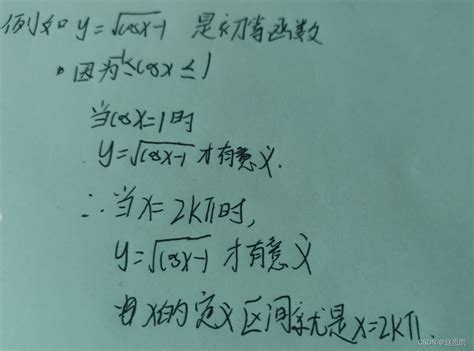 例如 y=√cosx-1 是初等函数
• 因为-1≤cosx≤1
当cosx=1时
y=√cosx-1 才有意义.
∴当x=2kπ时,
y=√cosx-1 才有意义
x的定义区间就是x=2kπ.
CSDN @赵照凯